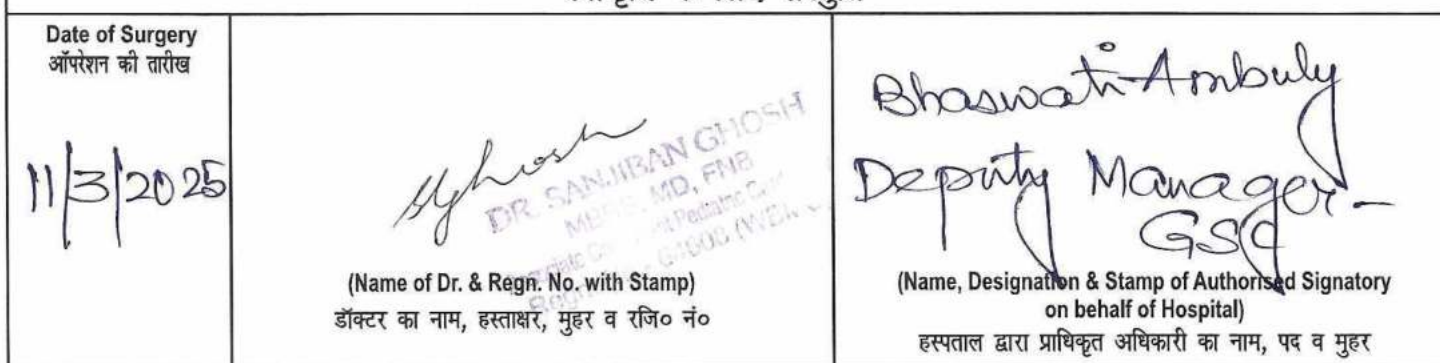 Date of Surgery
ऑपरेशन की तारीख
11/3/2025
DR. SANJIBAN GHOSH
MBBS, MD, FNB
(Name of Dr. & Regn. No. with Stamp)
डॉक्टर का नाम, हस्ताक्षर, मुहर व रजि० नं०
Bhaswati Ambuly
Deputy Manager-
GSC
(Name, Designation & Stamp of Authorised Signatory
on behalf of Hospital)
हस्पताल द्वारा प्राधिकृत अधिकारी का नाम, पद व मुहर